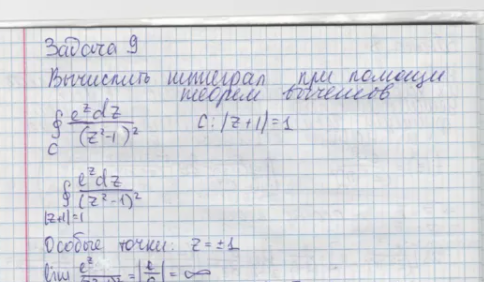 Задача 9
Вычислить интеграл при помощи
теорем вычетов
∮ e^z dz / (z²-1)²   c: |z+1|=1
c
∮ e^z dz / (z²-1)²
|z+1|=1
Особые точки: z=±1
lim e^z / (z²-1)² = |e/0| = ∞